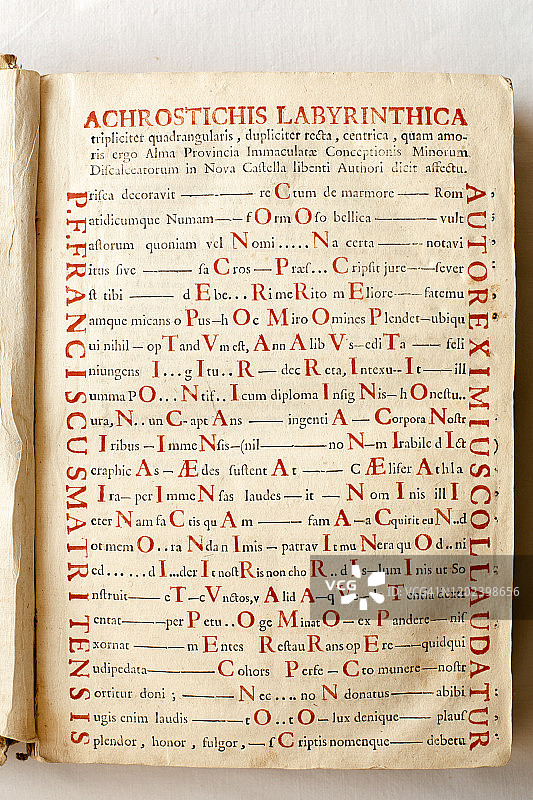 ACHROSTICHIS LABYRINTHICA
tripliciter quadrangularis, dupliciter recta, centrica, quam amo-
ris ergo Alma Provincia Immaculatæ Conceptionis Minorum
Discalceatorum in Nova Castella libenti Authori dicit affectu.
Prisca decoravit —— re Ctum de marmore —— RomA,
.atidicumque Numam —— f Orm Oso bellica —— vultU
Fastorum quoniam vel Nomi ..... Na certa —— notaviT
.itus sive —— sa Cros – Præs... Cripsit jure —— severO
R st tibi —— d Ebe... Ri me Rito m Eliore —— fatemuR
amque micans o Pus – h Oc Miro Omines Plendet – ubiquE
ui nihil – op Tand Vm est, A nn A lib Vs – edi Ta — feliX
niungens I ... g Itu .. R — dec Reta, Intexu – It — illI
umma PO .. Ntif .. Icum diploma Insig Nis – h Onestu..M
ura, N .. un C – apt Ans —— ingenti A – Corpora NostrI
Iribus – Imme Nsis – (nil —— no N – m Irabile d Ict)U
eraphic As – Æ des sustent At —— C Æ lifer A thla S
Ira – per Imme Nsas laudes — it — Nom Inis ill IC
eter Nam fa Ctis qu Am —— fam A – a Cquirit eu N..dO
ot mem O .. ra Ndan Imis – patrav It mu Nera qu O d.. niL
ed ...... d I .. der It nost Ris non cho R .. d Is – lum Inis ut SoL
nstruit —— e T – c Vnctos, v Alid A – q
entat —— per Petu .. O ge Minat O – ex Pandere — nis
xornat —— m Entes Restau Rans op Ere —— quidqui D
udipedata —— Cohors Perfe – Cto munere — nostrA
ortitur doni; —— Nec .... no N donatus —— abibiT
ugis enim laudis —— t O .. t O – lux denique —— plausU
Splendor, honor, fulgor, — s Criptis nomenque — debetuR
P. F. FRANCISCUS MATRITENSIS
AUTOR EXIMIUS COLLAUDATUR
VCG
VCG41N1202398656
VCG.COM